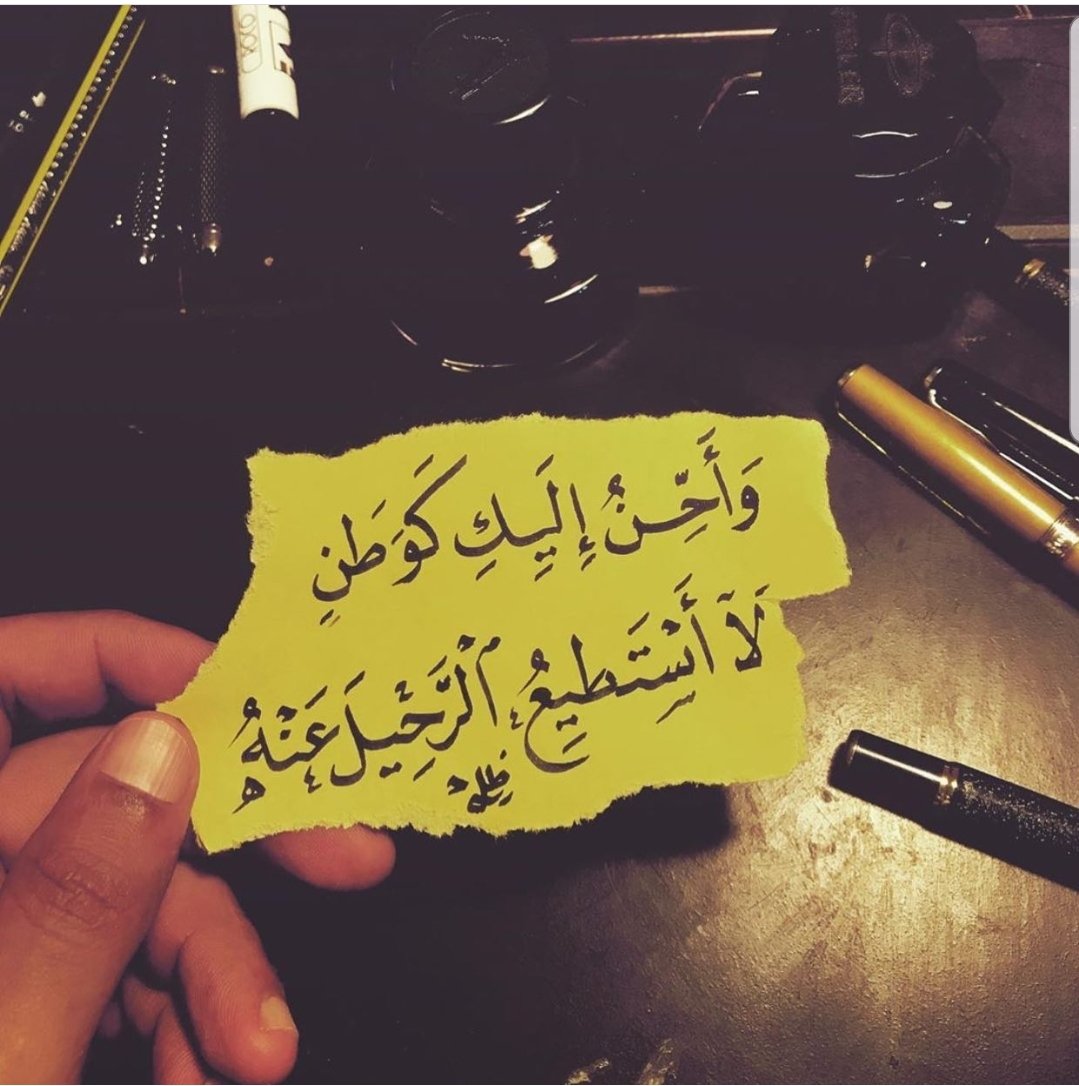 وَأَحِّنُ إِلَيكِ كَوَطَنٍ
لَا أَسْتَطِيعُ ٱلْرَّحْيِلَ عَنْهُ